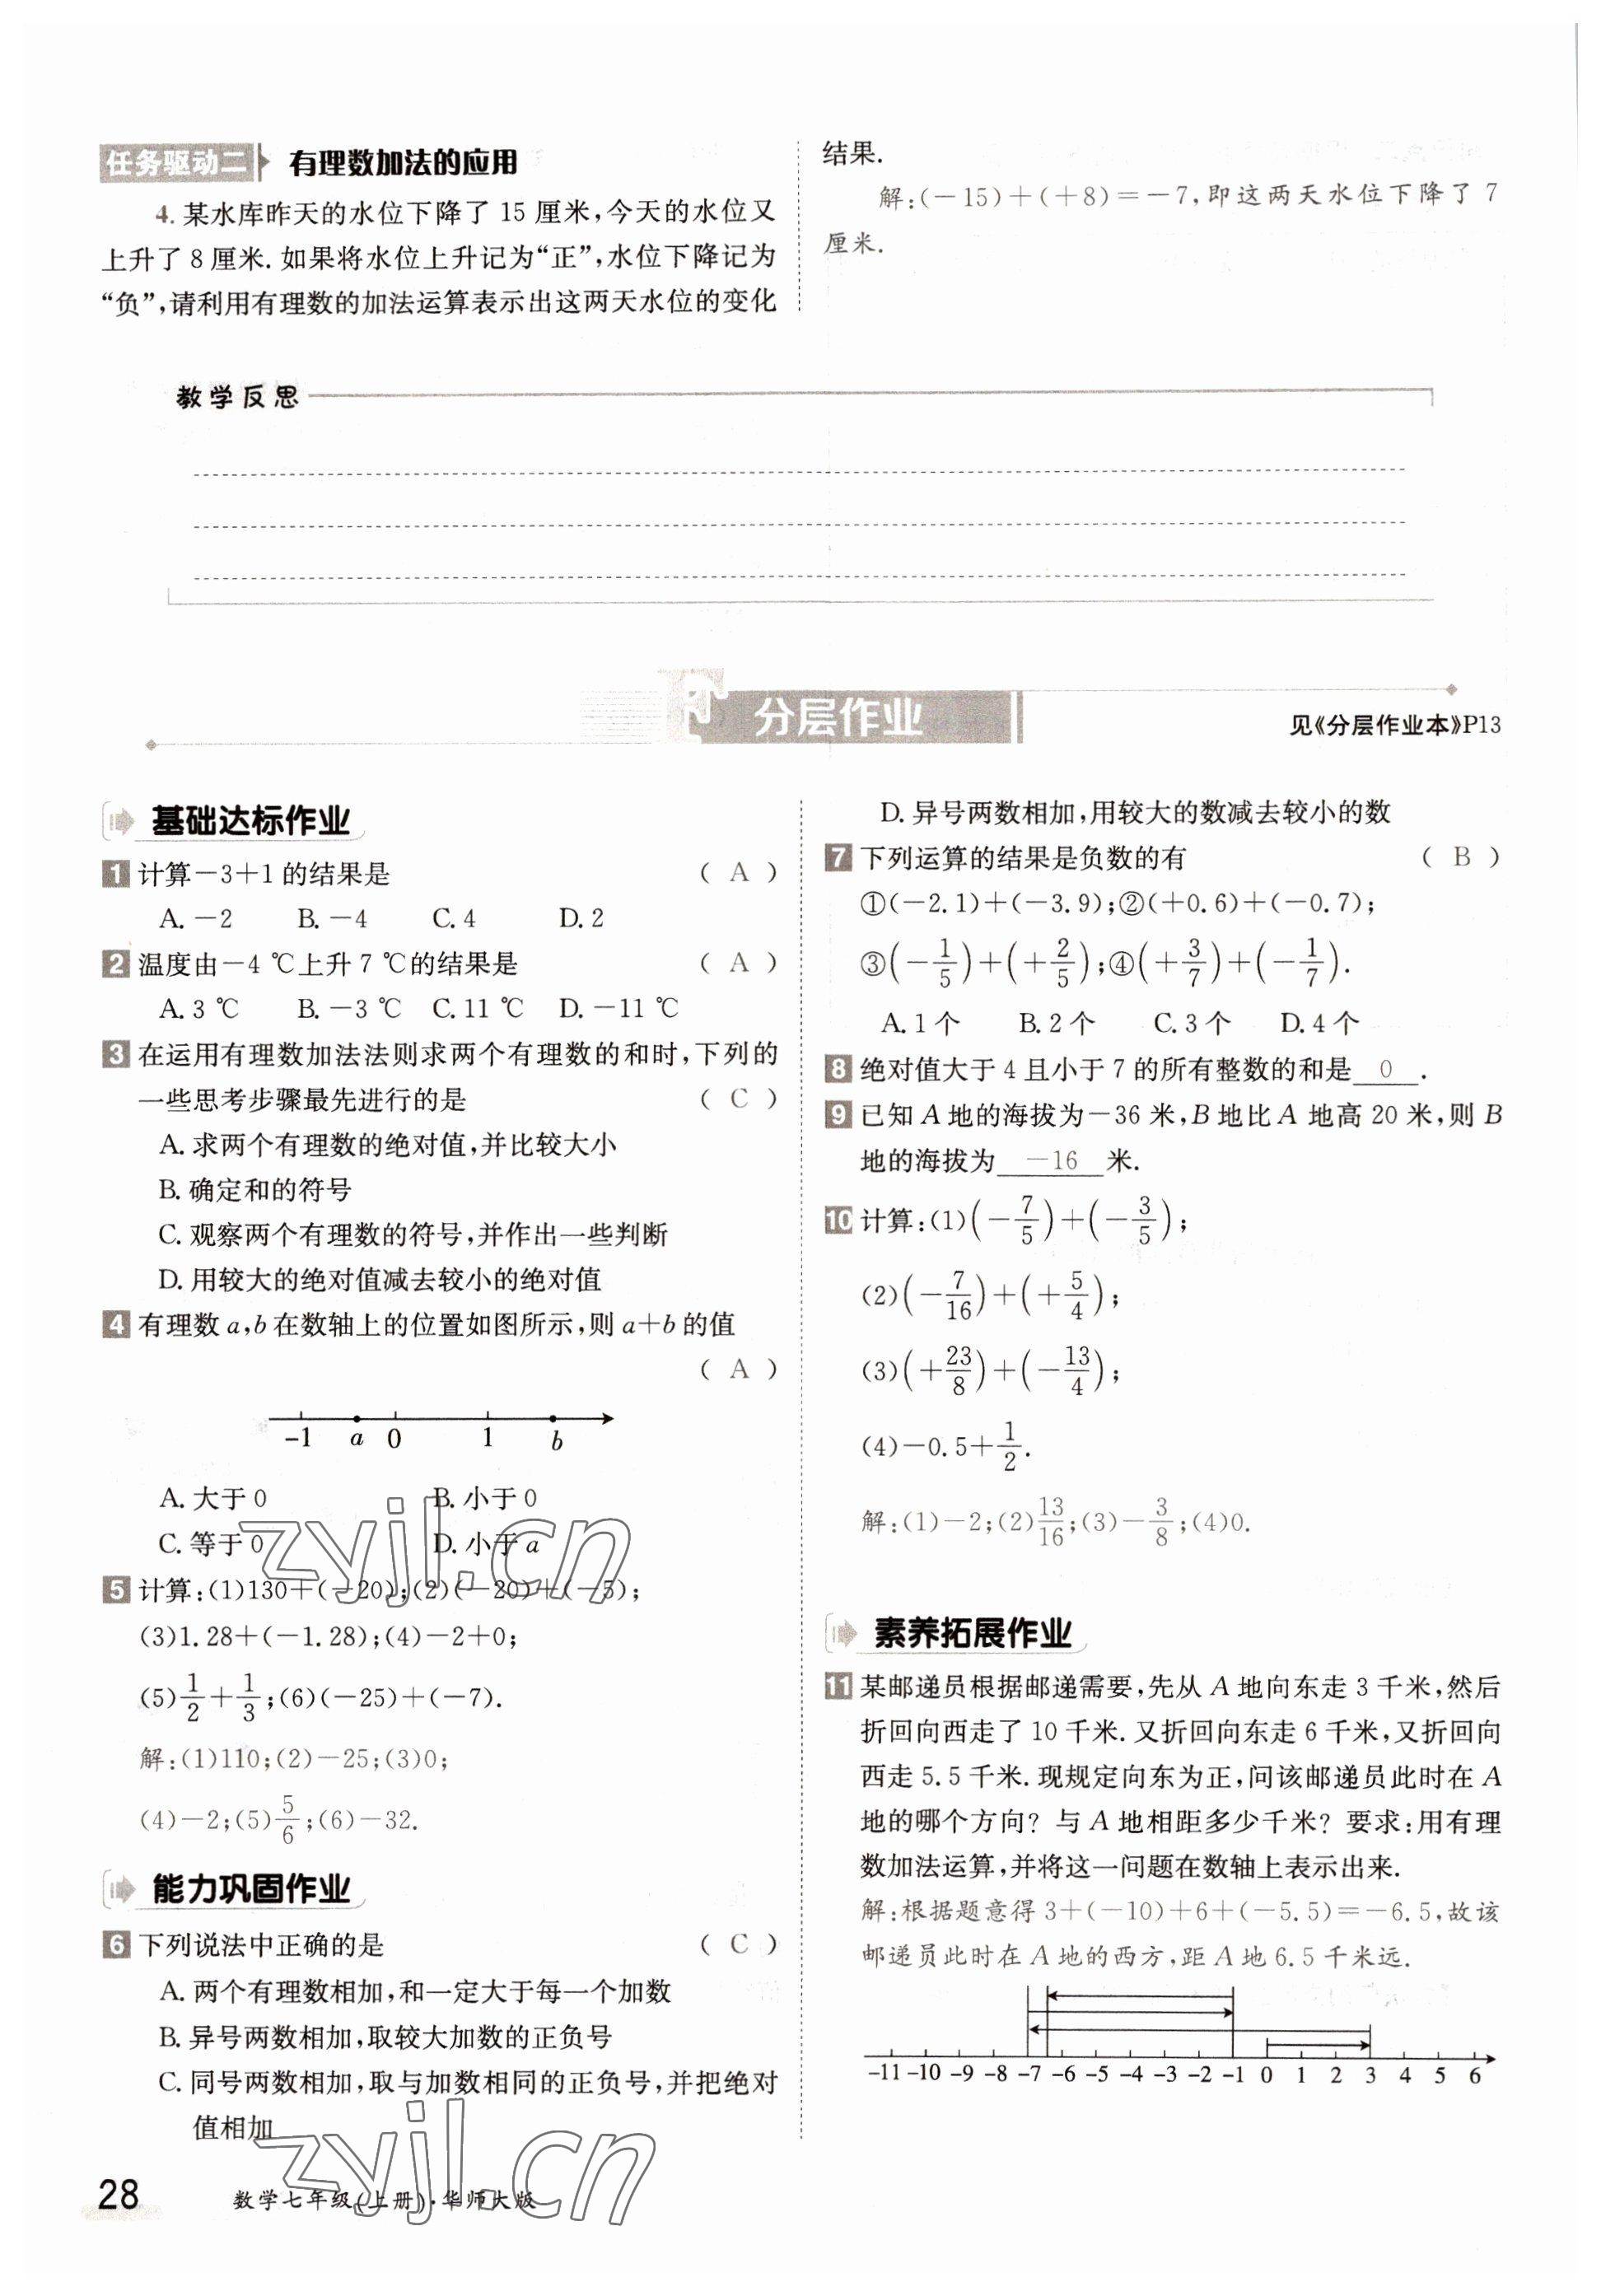 任务驱动二 有理数加法的应用
4. 某水库昨天的水位下降了 15 厘米,今天的水位又
上升了 8 厘米. 如果将水位上升记为“正”,水位下降记为
“负”,请利用有理数的加法运算表示出这两天水位的变化
结果.
解:(-15)+(+8)=-7,即这两天水位下降了 7
厘米.
教学反思
分层作业
见《分层作业本》P13
基础达标作业
1 计算-3+1 的结果是 ( A )
A. -2 B. -4 C. 4 D. 2
2 温度由-4 ℃上升 7 ℃的结果是 ( A )
A. 3 ℃ B. -3 ℃ C. 11 ℃ D. -11 ℃
3 在运用有理数加法法则求两个有理数的和时,下列的
一些思考步骤最先进行的是 ( C )
A. 求两个有理数的绝对值,并比较大小
B. 确定和的符号
C. 观察两个有理数的符号,并作出一些判断
D. 用较大的绝对值减去较小的绝对值
4 有理数 a,b 在数轴上的位置如图所示,则 a+b 的值
( A )
-1 a 0 1 b
A. 大于 0 B. 小于 0
C. 等于 0 D. 小于 a
5 计算:(1)130+(-20);(2)(-20)+(-5);
(3)1.28+(-1.28);(4)-2+0;
(5)1/2+1/3;(6)(-25)+(-7).
解:(1)110;(2)-25;(3)0;
(4)-2;(5)5/6;(6)-32.
能力巩固作业
6 下列说法中正确的是 ( C )
A. 两个有理数相加,和一定大于每一个加数
B. 异号两数相加,取较大加数的正负号
C. 同号两数相加,取与加数相同的正负号,并把绝对
值相加
D. 异号两数相加,用较大的数减去较小的数
7 下列运算的结果是负数的有 ( B )
①(-2.1)+(-3.9);②(+0.6)+(-0.7);
③(-1/5)+(+2/5);④(+3/7)+(-1/7).
A. 1 个 B. 2 个 C. 3 个 D. 4 个
8 绝对值大于 4 且小于 7 的所有整数的和是 0 .
9 已知 A 地的海拔为-36 米,B 地比 A 地高 20 米,则 B
地的海拔为 -16 米.
10 计算:(1)(-7/5)+(-3/5);
(2)(-7/16)+(+5/4);
(3)(+23/8)+(-13/4);
(4)-0.5+1/2.
解:(1)-2;(2)13/16;(3)-3/8;(4)0.
素养拓展作业
11 某邮递员根据邮递需要,先从 A 地向东走 3 千米,然后
折回向西走了 10 千米. 又折回向东走 6 千米,又折回向
西走 5.5 千米. 现规定向东为正,问该邮递员此时在 A
地的哪个方向? 与 A 地相距多少千米? 要求:用有理
数加法运算,并将这一问题在数轴上表示出来.
解:根据题意得 3+(-10)+6+(-5.5)=-6.5,故该
邮递员此时在 A 地的西方,距 A 地 6.5 千米远.
-11 -10 -9 -8 -7 -6 -5 -4 -3 -2 -1 0 1 2 3 4 5 6
zyjl.cn
zyjl.cn
28 数学七年级(上册)·华师大版